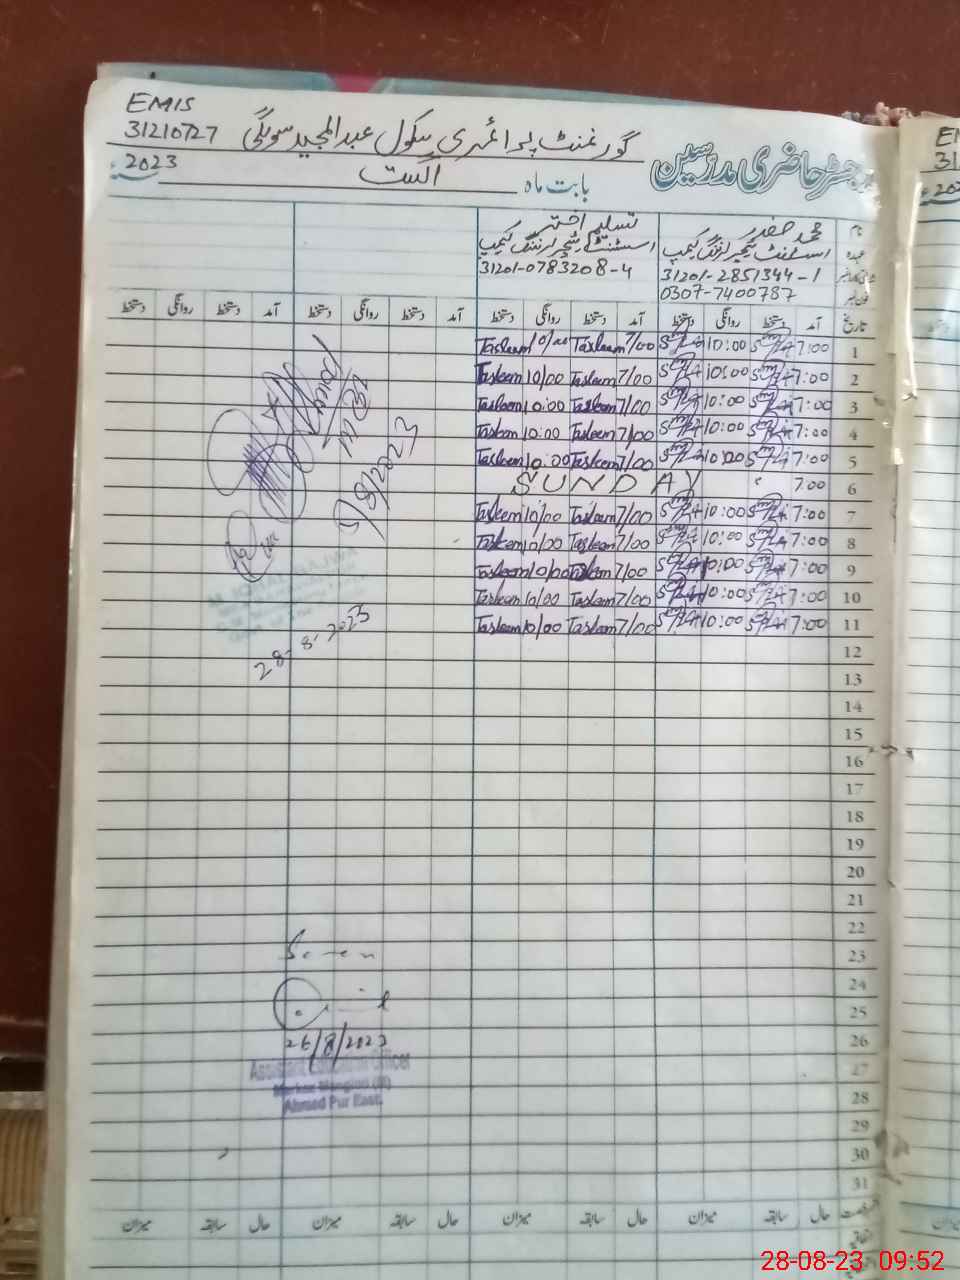 EMIS
31210727 گورنمنٹ پرائمری سکول عبدالمجید سوہگی
رجسٹر حاضری مدرسین بابت ماہ اگست 2023ء
نام محمد صفدر تسلیم اختر
عہدہ اسسٹنٹ ٹیچر لرننگ کیمپ اسسٹنٹ ٹیچر لرننگ کیمپ
31201-2851344-1 31201-0783208-4
0307-7400787
تاریخ آمد دستخط روانگی دستخط آمد دستخط روانگی دستخط آمد دستخط روانگی دستخط آمد دستخط روانگی دستخط
1 7:00 10:00 7/00 Tasleem 10/00 Tasleem
2 7:00 10:00 7/00 Tasleem 10/00 Tasleem
3 7:00 10:00 7/00 Tasleem 10:00 Tasleem
4 7:00 10:00 7/00 Tasleem 10:00 Tasleem
5 7:00 10:00 7/00 Tasleem 10:00 Tasleem
6 7:00 SUNDAY
7 7:00 10:00 7/00 Tasleem 10/00 Tasleem
8 7:00 10:00 7/00 Tasleem 10/00 Tasleem
9 7:00 10:00 7/00 Tasleem 10/00 Tasleem
10 7:00 10:00 7/00 Tasleem 10/00 Tasleem
11 7:00 10:00 7/00 Tasleem 10/00 Tasleem
12
13
14
15
16
17
18
19
20
21
22
23
24
25
26
27
28
29
30
31
28-8-2023
Seen
26/8/2023
Assistant Education Officer
Ahmed Pur East.
حال سابقہ میزان حال سابقہ میزان حال سابقہ میزان حال سابقہ میزان
28-08-23 09:52